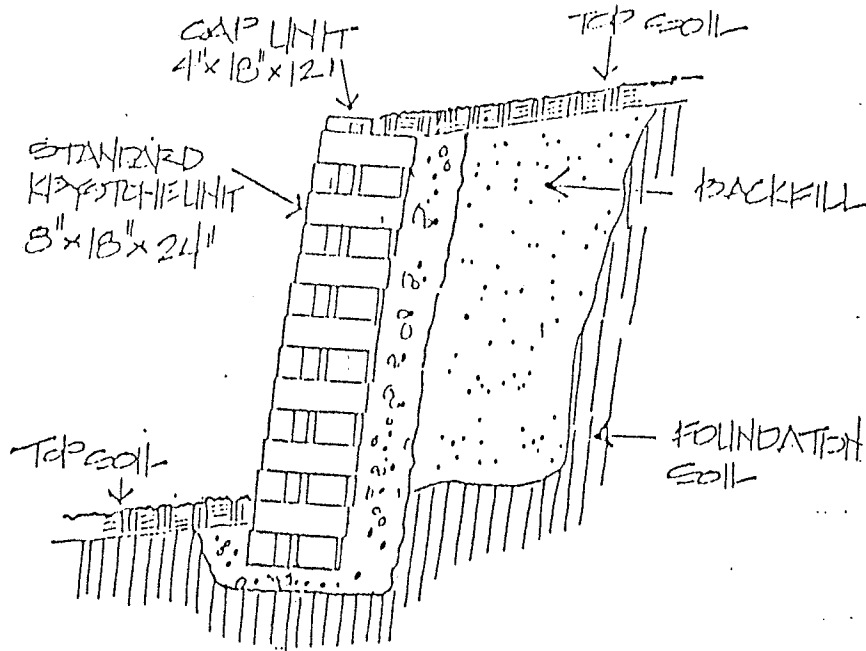 CAP UNIT
4"x18"x12"
TOP SOIL
STANDARD
KEYSTONE UNIT
8"x18"x24"
BACKFILL
TOP SOIL
FOUNDATION
SOIL